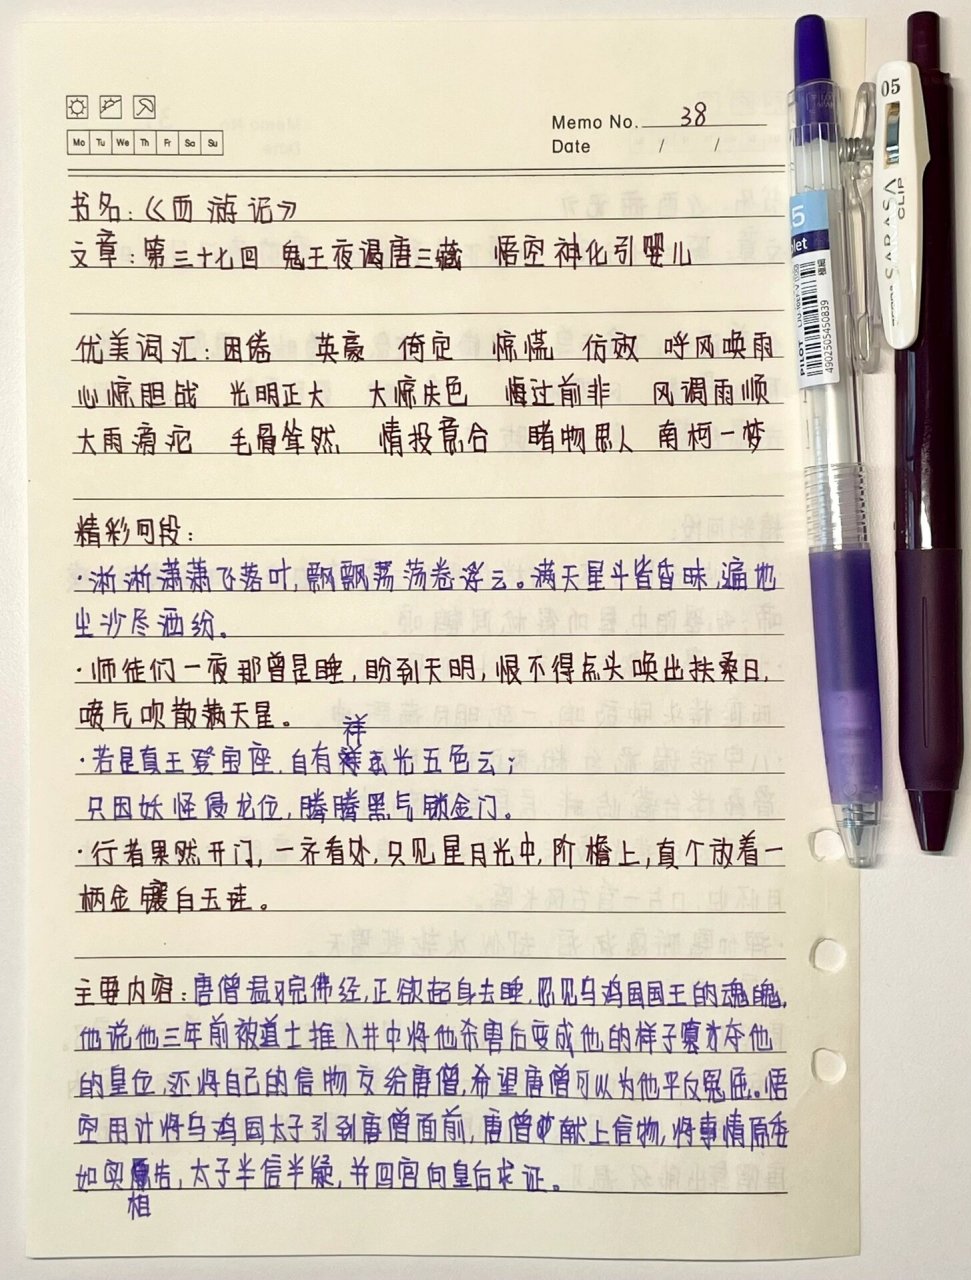 Mo Tu We Th Fr Sa Su
Memo No. 38
Date / /
书名:《西游记》
文章:第三十七回 鬼王夜谒唐三藏 悟空神化引婴儿
优美词汇:困倦 英豪 倚定 惊慌 仿效 呼风唤雨
心惊胆战 光明正大 大惊失色 悔过前非 风调雨顺
大雨滂沱 毛骨耸然 情投意合 睹物思人 南柯一梦
精彩句段:
·淅淅潇潇飞落叶,飘飘荡荡卷浮云。满天星斗皆昏昧,遍地
尘沙尽洒纷。
·师徒们一夜那曾是睡,盼到天明,恨不得点头唤出扶桑日,
喷气吹散满天星。
·若是真王登宝座,自有祥光五色云;
只因妖怪侵龙位,腾腾黑气锁金门。
·行者果然开门,一齐看处,只见星月光中,阶檐上,真个放着一
柄金镶白玉珪。
主要内容:唐僧温习完佛经,正欲起身去睡,忽见乌鸡国国王的魂魄,
他说他三年前被道士推入井中将他杀害后变成他的样子霸夺他
的皇位,还将自己的信物交给唐僧,希望唐僧可以为他平反冤屈。悟
空用计将乌鸡国太子引到唐僧面前,唐僧献上信物,将事情原委
如实相告,太子半信半疑,并回宫向皇后求证。
05
SARASA
CLIP
5
let
PILOT
4902505450839